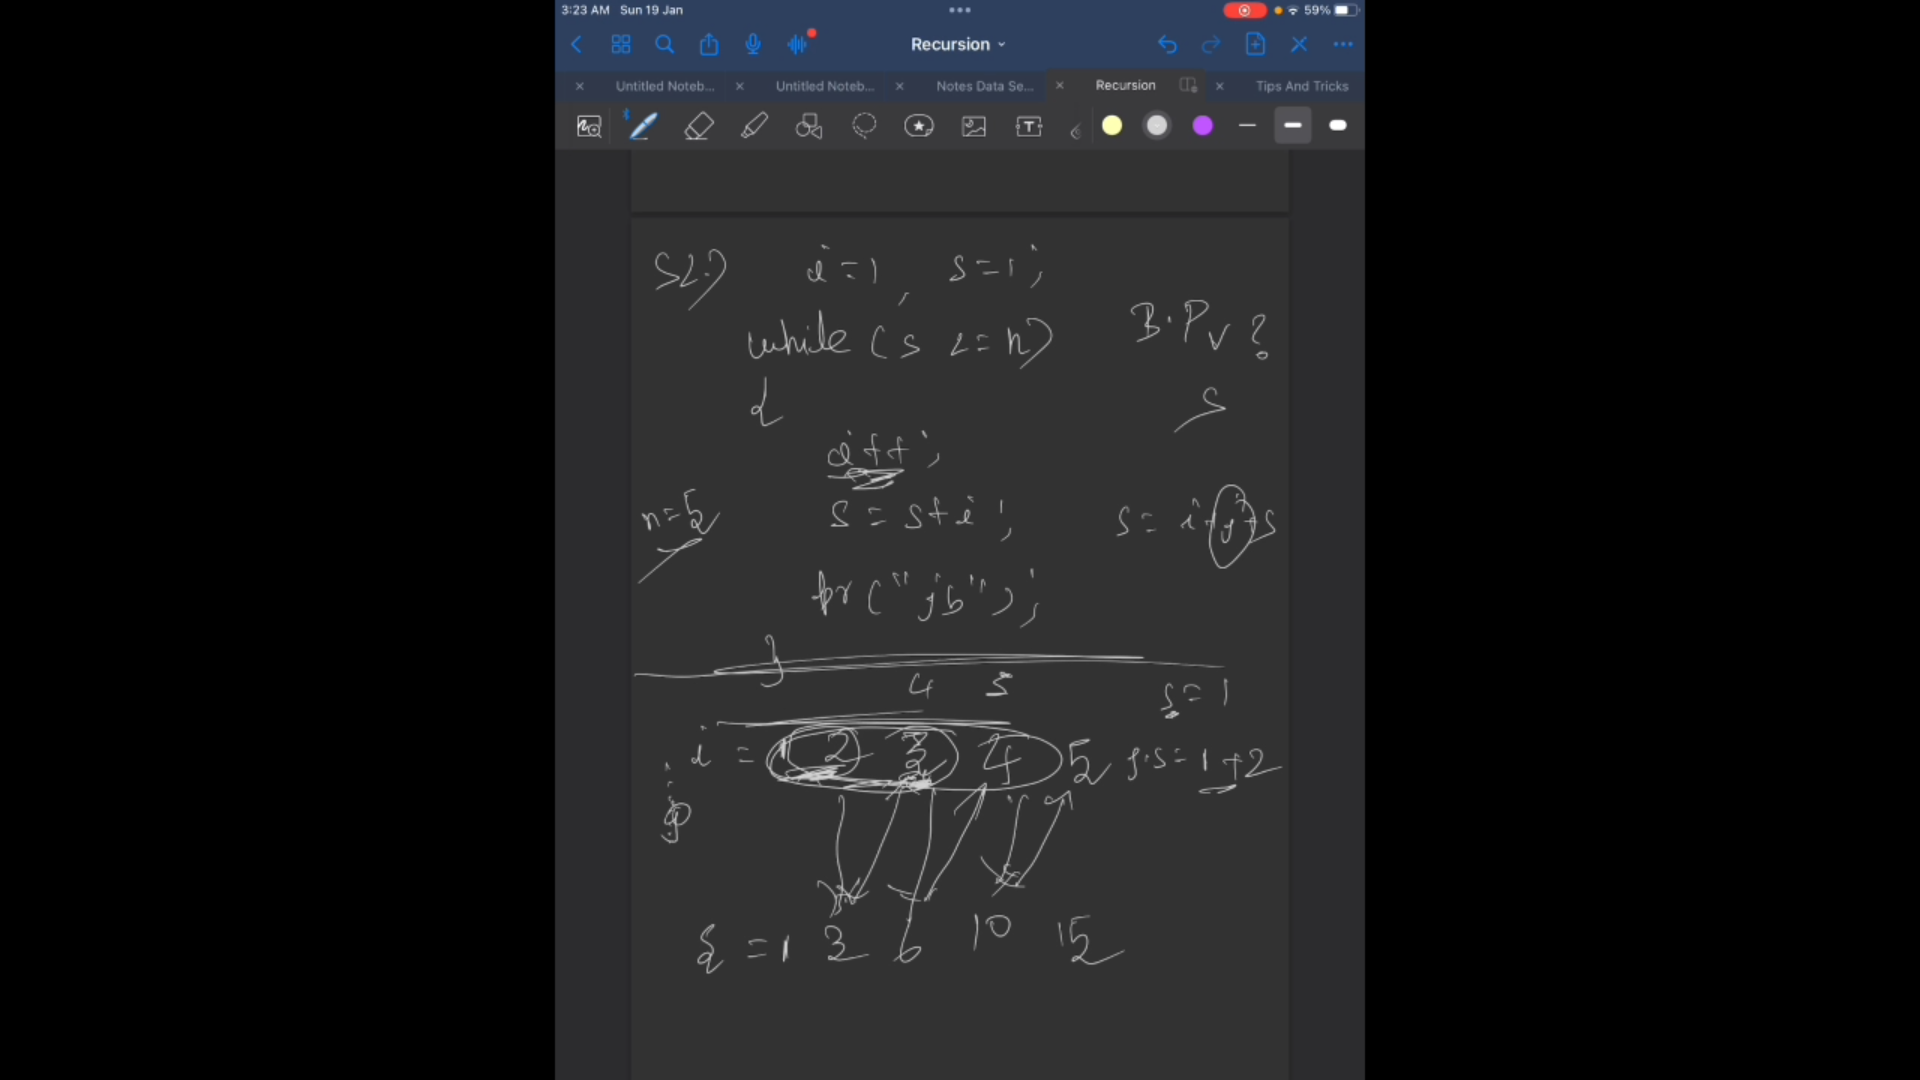 3:23 AM Sun 19 Jan
59%
Recursion
Untitled Noteb...
Untitled Noteb...
Notes Data Se...
Recursion
Tips And Tricks
i=1, s=1;
while (s <= n)
B.Pv?
{
s
i++;
n=5
s = s+i;
pr("jb");
}
4 5
s=1
i = 1 2 3 4 5
s=1+2
s = 1 3 6 10 15